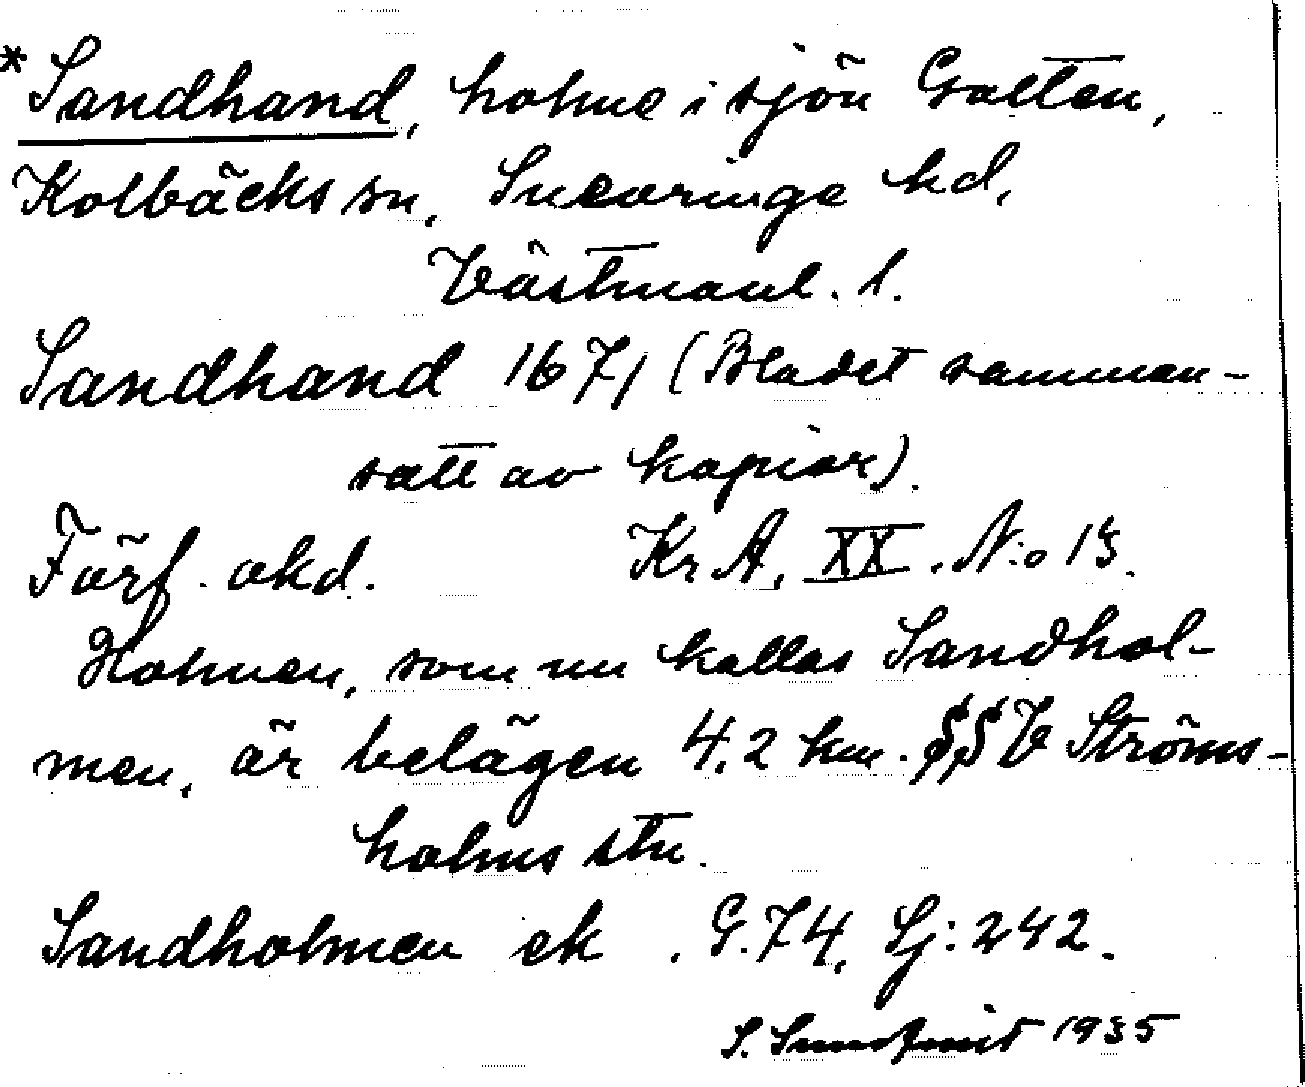 *Sandhand, holme i sjön Galten,
Kolbäcks sn, Snevringe hd,
Västmanl. l.
Sandhand 1671 (Bladet samman-
satt av kopior).
Förf. okd. Kr A, XX. N:o 13.
Holmen, som nu kallas Sandhol-
men, är belägen 4,2 km. SSV Ströms-
holms stn.
Sandholmen ek. G.74, Lj:242.
S. Sundqvist 1935